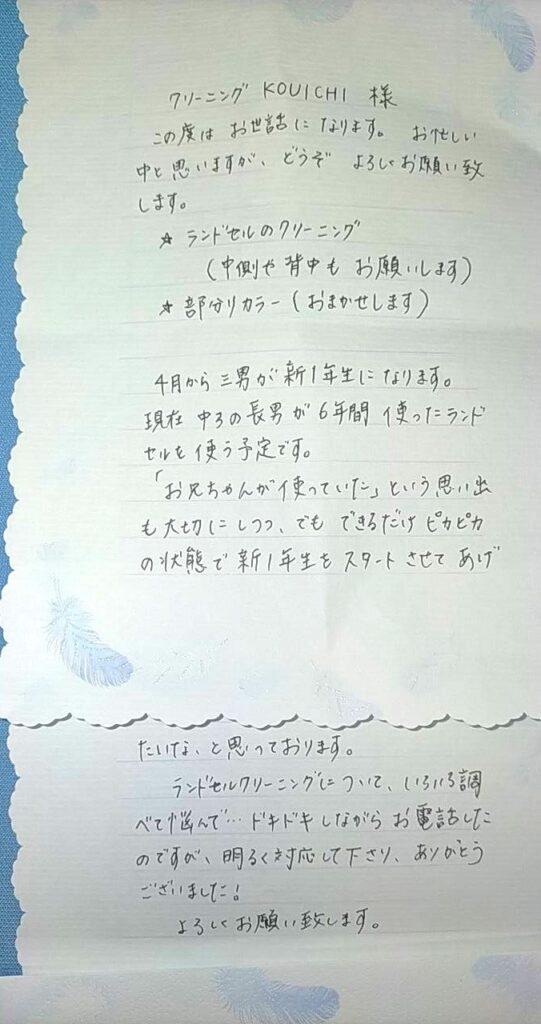 クリーニング KOUICHI 様
この度は お世話に なります。 お忙しい
中と思いますが、どうぞ よろしくお願い致
します。
☆ ランドセルのクリーニング
(中側や 背中も お願いします)
☆ 部分リカラー (おまかせします)
4月から 三男が 新1年生に なります。
現在 中3の 長男が 6年間 使ったランド
セルを 使う予定です。
「お兄ちゃんが 使っていた」という思い出
も大切にしつつ、でも できるだけ ピカピカ
の状態で 新1年生を スタート させて あげ
たいな、と思っております。
ランドセルクリーニングについて、いろいろ調
べて悩んで… ドキドキしながら お電話した
のですが、明るく対応して下さり、ありがとう
ございました!
よろしくお願い致します。